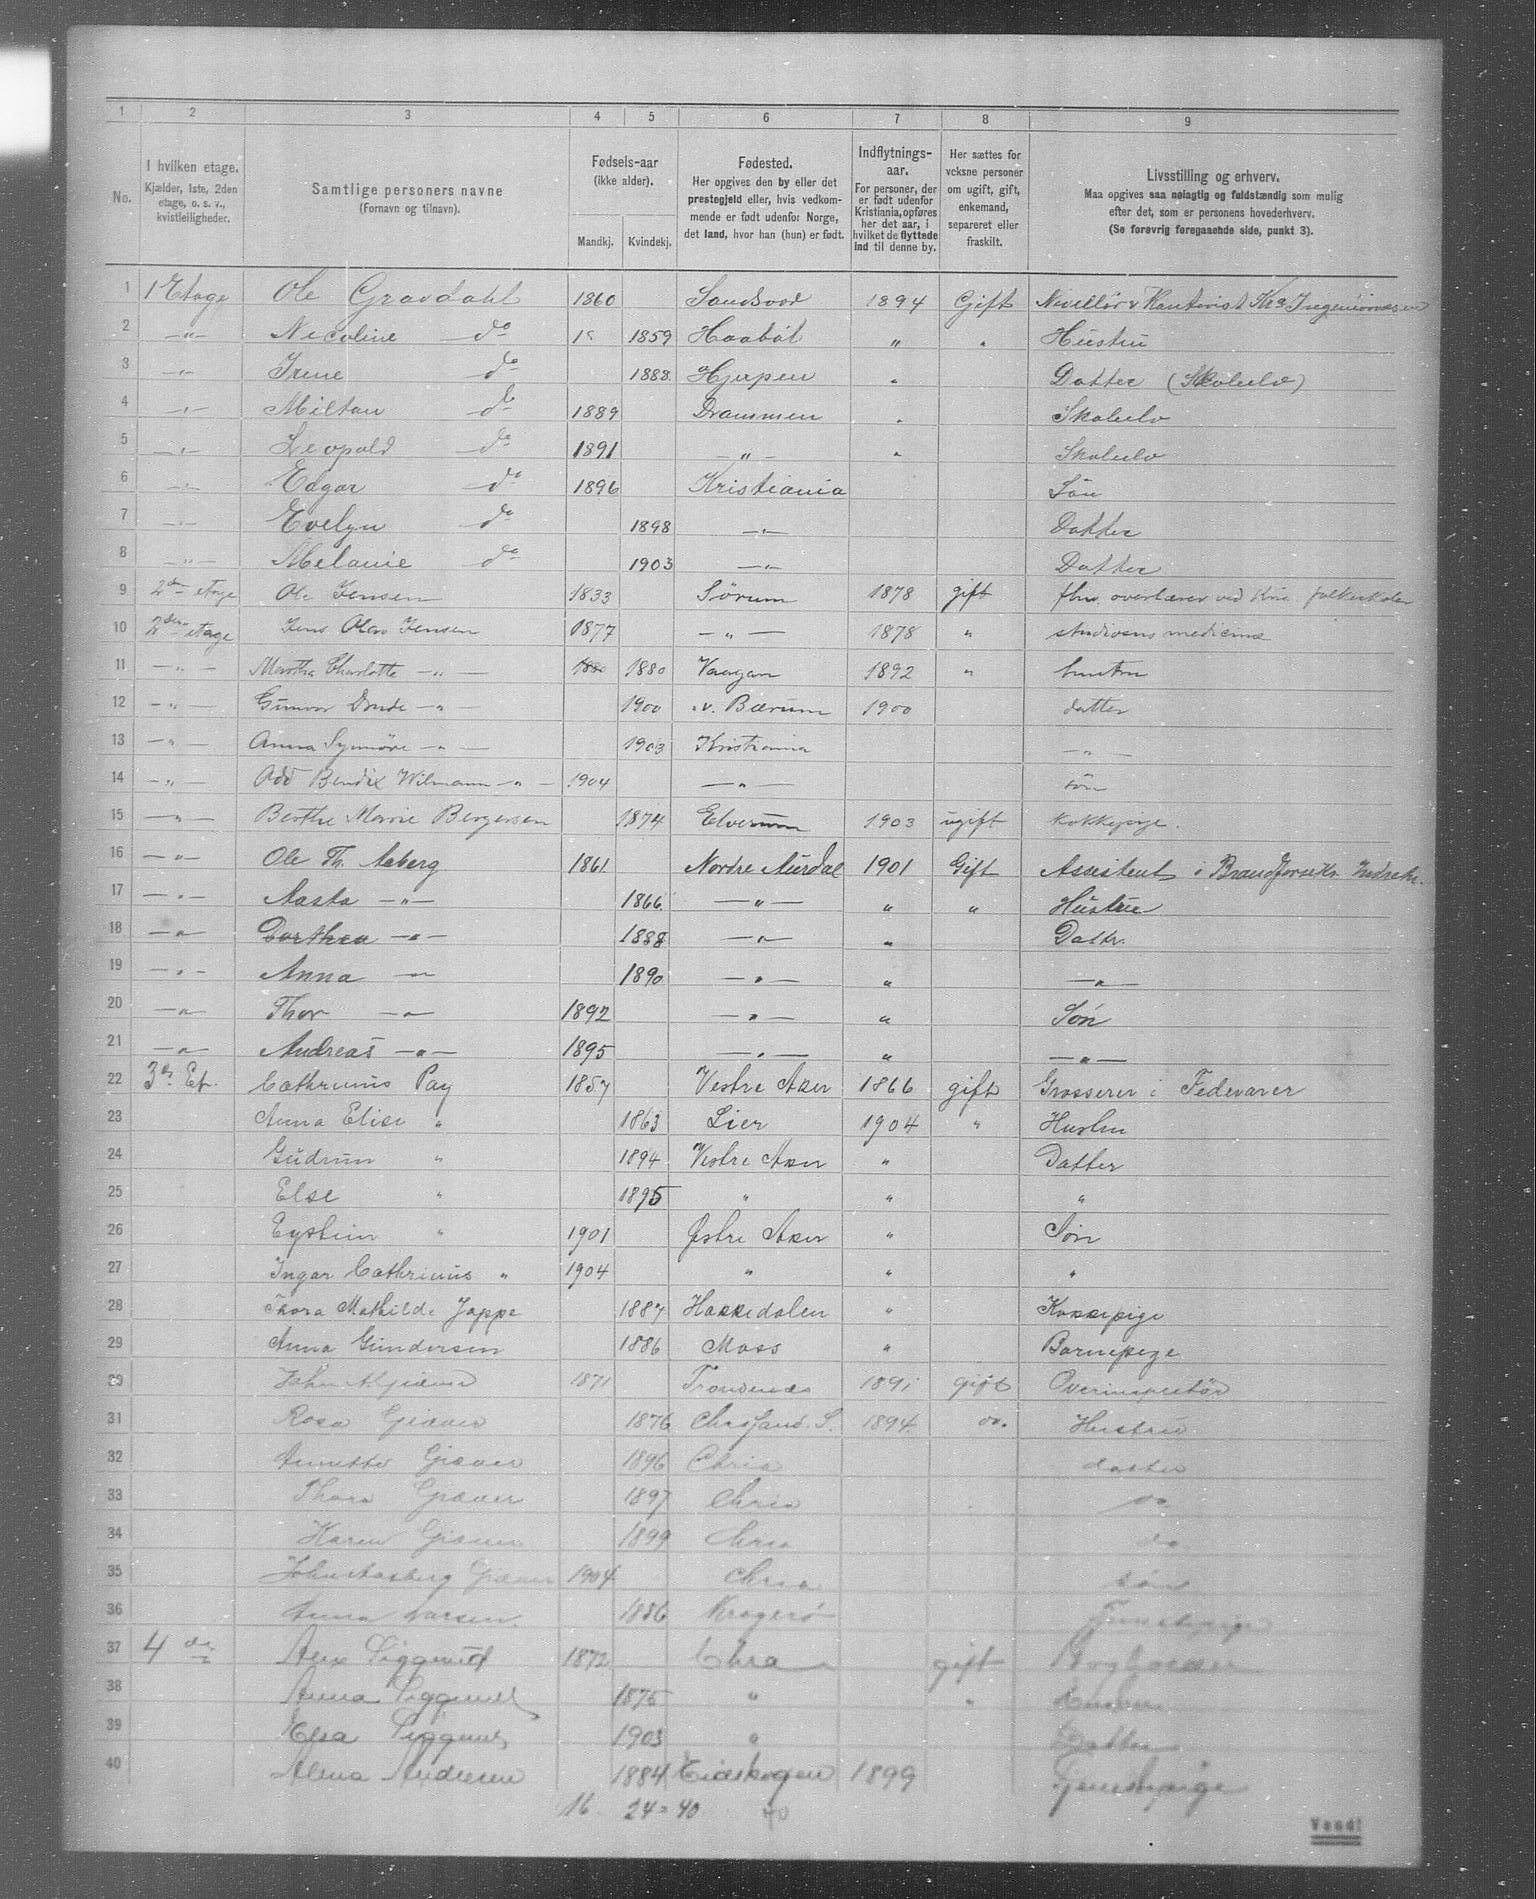 1 2 3 4 5 6 7 8 9
No. I hvilken etage. Kjælder, 1ste, 2den etage, o. s. v., kvistleiligheder. Samtlige personers navne (Fornavn og tilnavn). Fødsels-aar (ikke alder). Mandkj. Kvindekj. Fødested. Her opgives den by eller det prestegjeld eller, hvis vedkommende er født udenfor Norge, det land, hvor han (hun) er født. Indflytningsaar. For personer, der er født udenfor Kristiania, opføres her det aar, i hvilket de flyttede ind til denne by. Her sættes for voksne personer om ugift, gift, enkemand, separeret eller fraskilt. Livsstilling og erhverv. Maa opgives saa nøiagtig og fuldstændig som mulig efter det, som er personens hovederhverv. (Se forøvrig foregaaende side, punkt 3).
1 1 Etage Ole Gravdahl 1860 1894 Gift Nivellør & Kontorist
2 — " — Nicoline do 1859 " " Hüstrü
3 — " — Irene do 1888 Gjerpen " Datter (Skoleelv)
4 — " — Milton do 1889 Drammen " Skoleelv
5 — " — Leopold do 1891 — " — " Skoleelv
6 — " — Edgar do 1896 Kristiania Sön
7 — " — Evelyn do 1898 — " — Datter
8 — " — Melanie do 1903 — " — Datter
9 2den etage Ole Jensen 1833 Sørum 1878 gift fhv. overlærer ved Kria folkeskoler
10 2den etage Jens Olav Jensen 1877 — " — 1878 " studiosus medicinæ
11 — " — Martha Charlotte — " — 1880 1880 Vaagan 1892 " hustru
12 — " — Gunvor — " — 1900 v. Bærum 1900 datter
13 — " — Anna Synnøve — " — 1903 Kristiania — " —
14 — " — Odd Bendix Wilmann — " — 1904 — " — søn
15 — " — Berthe Marie Bergersen 1874 Elverum 1903 ugift kokkepige.
16 — " — Ole Th. Aaberg 1861 Nordre Aurdal 1901 Gift Assistent i Brandforsikr.
17 — " — Aasta — " — 1866 — " — " " Hüstrue
18 — " — Dorthea — " — 1888 — " — " Dattr.
19 — " — Anna — " — 1890 — " — " — " —
20 — " — Thor — " — 1892 — " — " Søn
21 — " — Andreas — " — 1895 — " — " — " —
22 3die Et. Cathrinus Pay 1857 Vestre Aker 1866 gift Grosserer i Fedevarer
23 Anna Elise " 1863 Lier 1904 " Hustru
24 Gudrun " 1894 Vestre Aker " Datter
25 Else " 1895 " " "
26 Eystein " 1901 Østre Aker " Søn
27 Ingar Cathrinus " 1904 " " "
28 Thora Mathilde Jappe 1887 Hakkedalen " Kokkepige
29 Anna Gundersen 1886 Moss " Barnepige
29 John A. Giæver 1871 Trondenæs 1891 gift Overinspektør
31 Rosa Giæver 1876 Chrsfand. S. 1894 do. Hustru
32 Annette Giæver 1896 Chria datter
33 Thora Giæver 1897 Chria do
34 Karen Giæver 1899 Chria do
35 John Aasberg Giæver 1904 Chria søn
36 Anna Larsen 1886 Kragerø Tjenestepige
37 4 de Alex Siggerud 1872 Chra gift Bogholder
38 Anna Siggerud 1875 " "
39 Elsa Siggerud 1903 " Datter
40 Alma Andresen 1884 Eidskogen 1899 Tjenestepige
16 24 = 40 40
Vend!